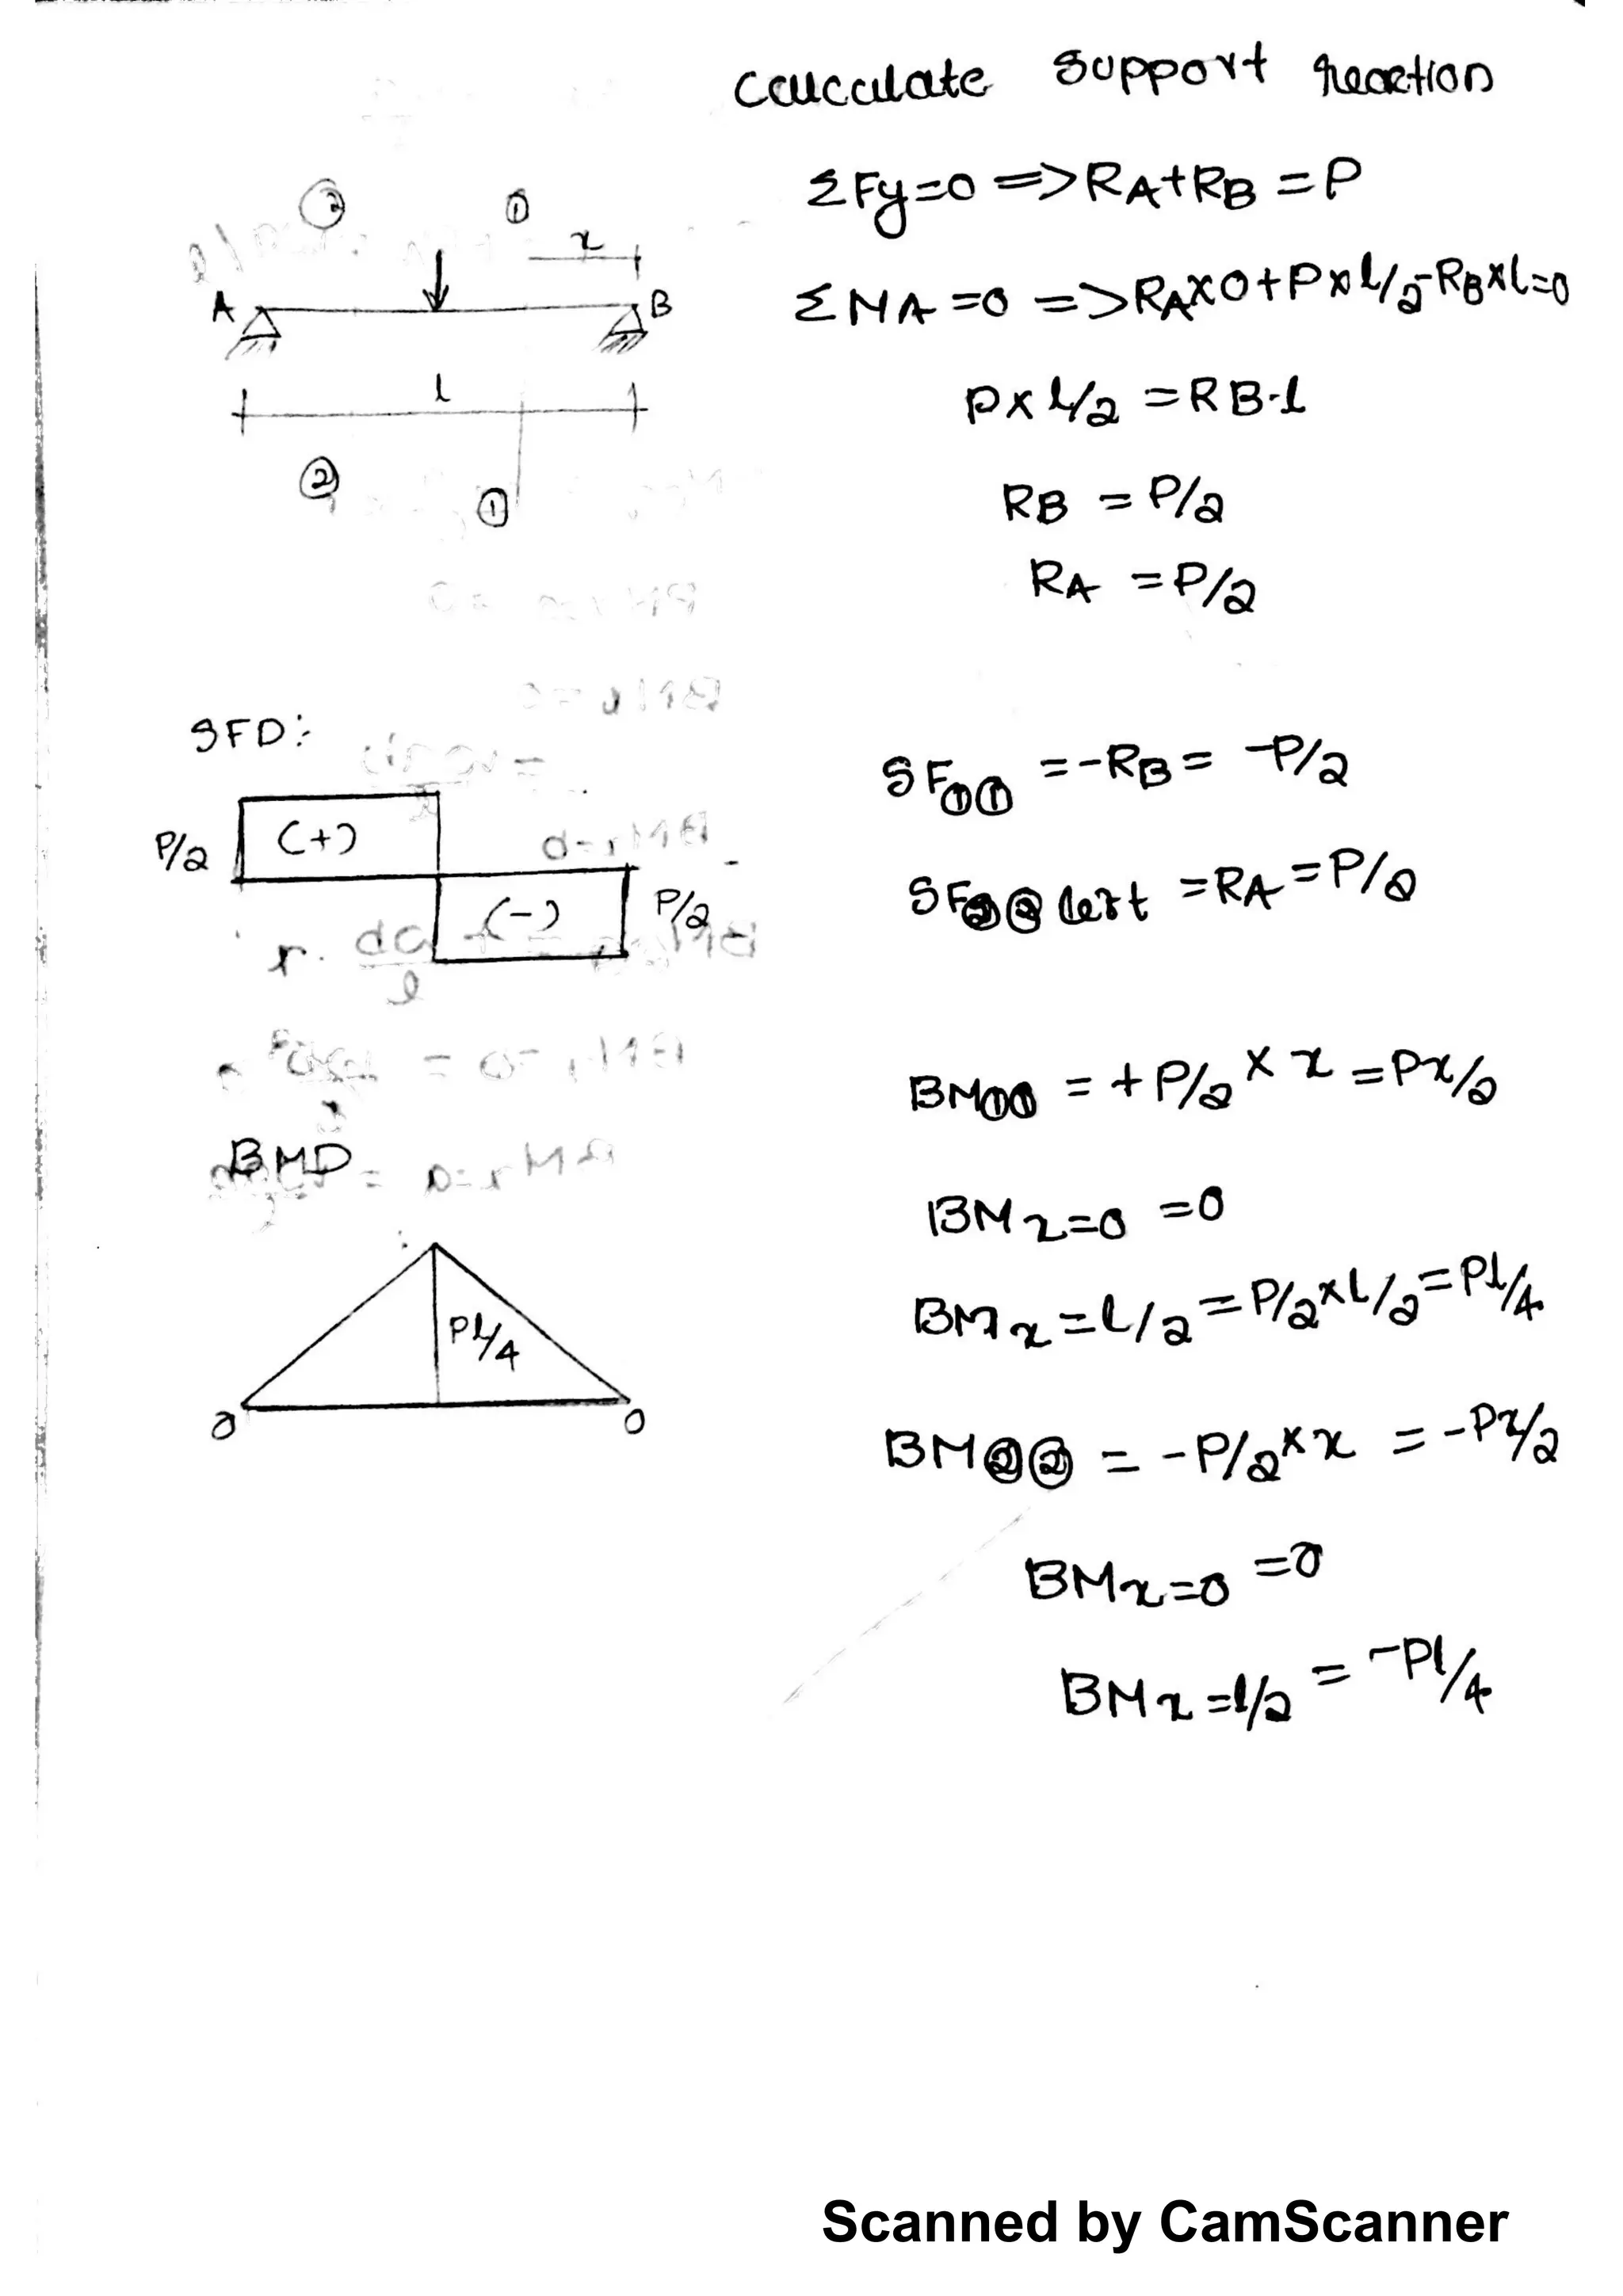 calculate support reaction
ΣFy=0 => RA+RB = P
ΣMA=0 => RA×0+P×l/2-RB×l=0
P×l/2 = RB.l
RB = P/2
RA = P/2
② ①
x
A B
l
②
①
SFD:
P/2 (+)
(-) P/2
SF①① = -RB = -P/2
SF②② left = RA = P/2
BM①① = +P/2 × x = Px/2
BM x=0 = 0
BM x = l/2 = P/2×l/2 = Pl/4
BM②② = -P/2×x = -Px/2
BM x=0 = 0
BM x=l/2 = -Pl/4
BMD
Pl/4
0 0
Scanned by CamScanner